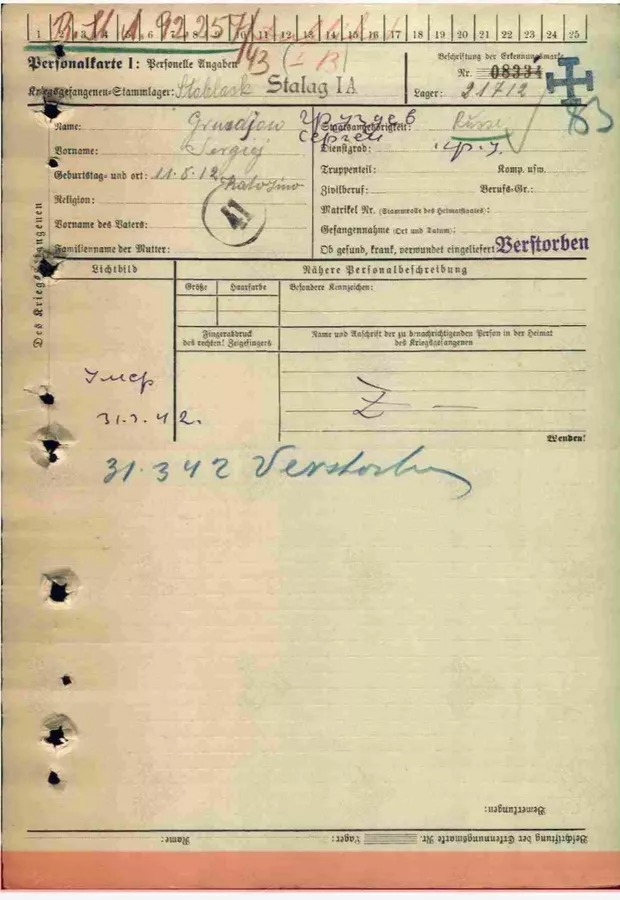 1 2 3 4 5 6 7 8 9 10 11 12 13 14 15 16 17 18 19 20 21 22 23 24 25
Personalkarte I: Personelle Angaben
143 (I B)
Kriegsgefangenen-Stammlager: Stablack Stalag IA
Beschriftung der Erkennungsmarke
Nr. 08334
Lager: 21712
83
Name: Grusdjow Груздев
Vorname: Sergiej Сергей
Geburtstag- und ort: 11.5.12
Religion:
Vorname des Vaters:
Familienname der Mutter:
41
Staatsangehörigkeit: Russe
Dienstgrad:
Truppenteil: Komp. usw.
Zivilberuf: Berufs-Gr.:
Matrikel Nr. (Stammrolle des Heimatstaates):
Gefangennahme (Ort und Datum):
Ob gesund, krank, verwundet eingeliefert: Verstorben
Des Kriegsgefangenen
Lichtbild
Nähere Personalbeschreibung
Größe Haarfarbe Besondere Kennzeichen:
Fingerabdruck
des rechten! Zeigefingers
Name und Anschrift der zu benachrichtigenden Person in der Heimat
des Kriegsgefangenen
Умер
31.3.42.
Z —
Wenden!
31.3 42 Verstorben
Bemerkungen:
Beschriftung der Erkennungsmarke Nr. Lager: Name: